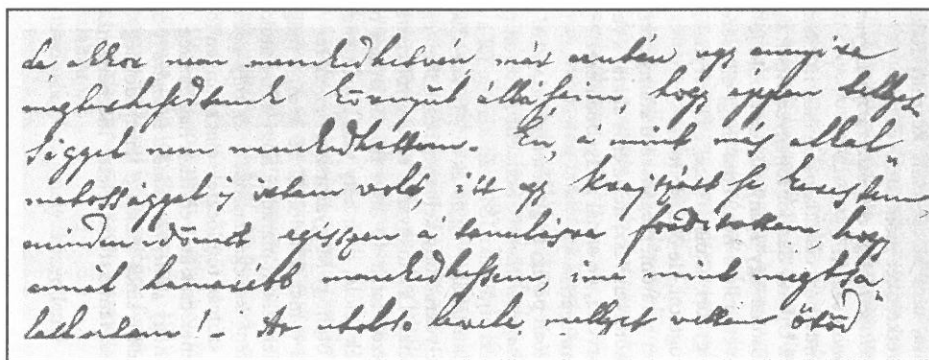 de akkor nem menekedhetvén, már azután egy annyira
megterhesedtenek környül állásaim, hogy éppen tellyes
séggel nem menekedhettem. Én, a mint még által
measággal is irtam volt, itt egy krajtzárt se kerestem,
minden időmet egészen a tanulásra fordítottam, hogy
annál hamarébb menekedhessem, ime mint megtsa
latkoztam! - Az utolso levele, mellyet vettem ötöd